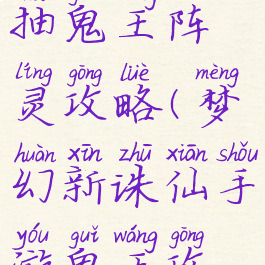 抽鬼王阵
líng gōng lüè mèng
灵攻略(梦
huàn xīn zhū xiān shǒu
幻新诛仙手
yóu guǐ wáng gōng